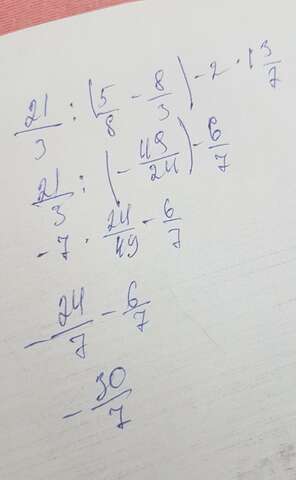 21/3 : (5/8 - 8/3) - 2 · 3/7
21/3 : (- 49/24) - 6/7
- 7 · 24/49 - 6/7
- 24/7 - 6/7
- 30/7